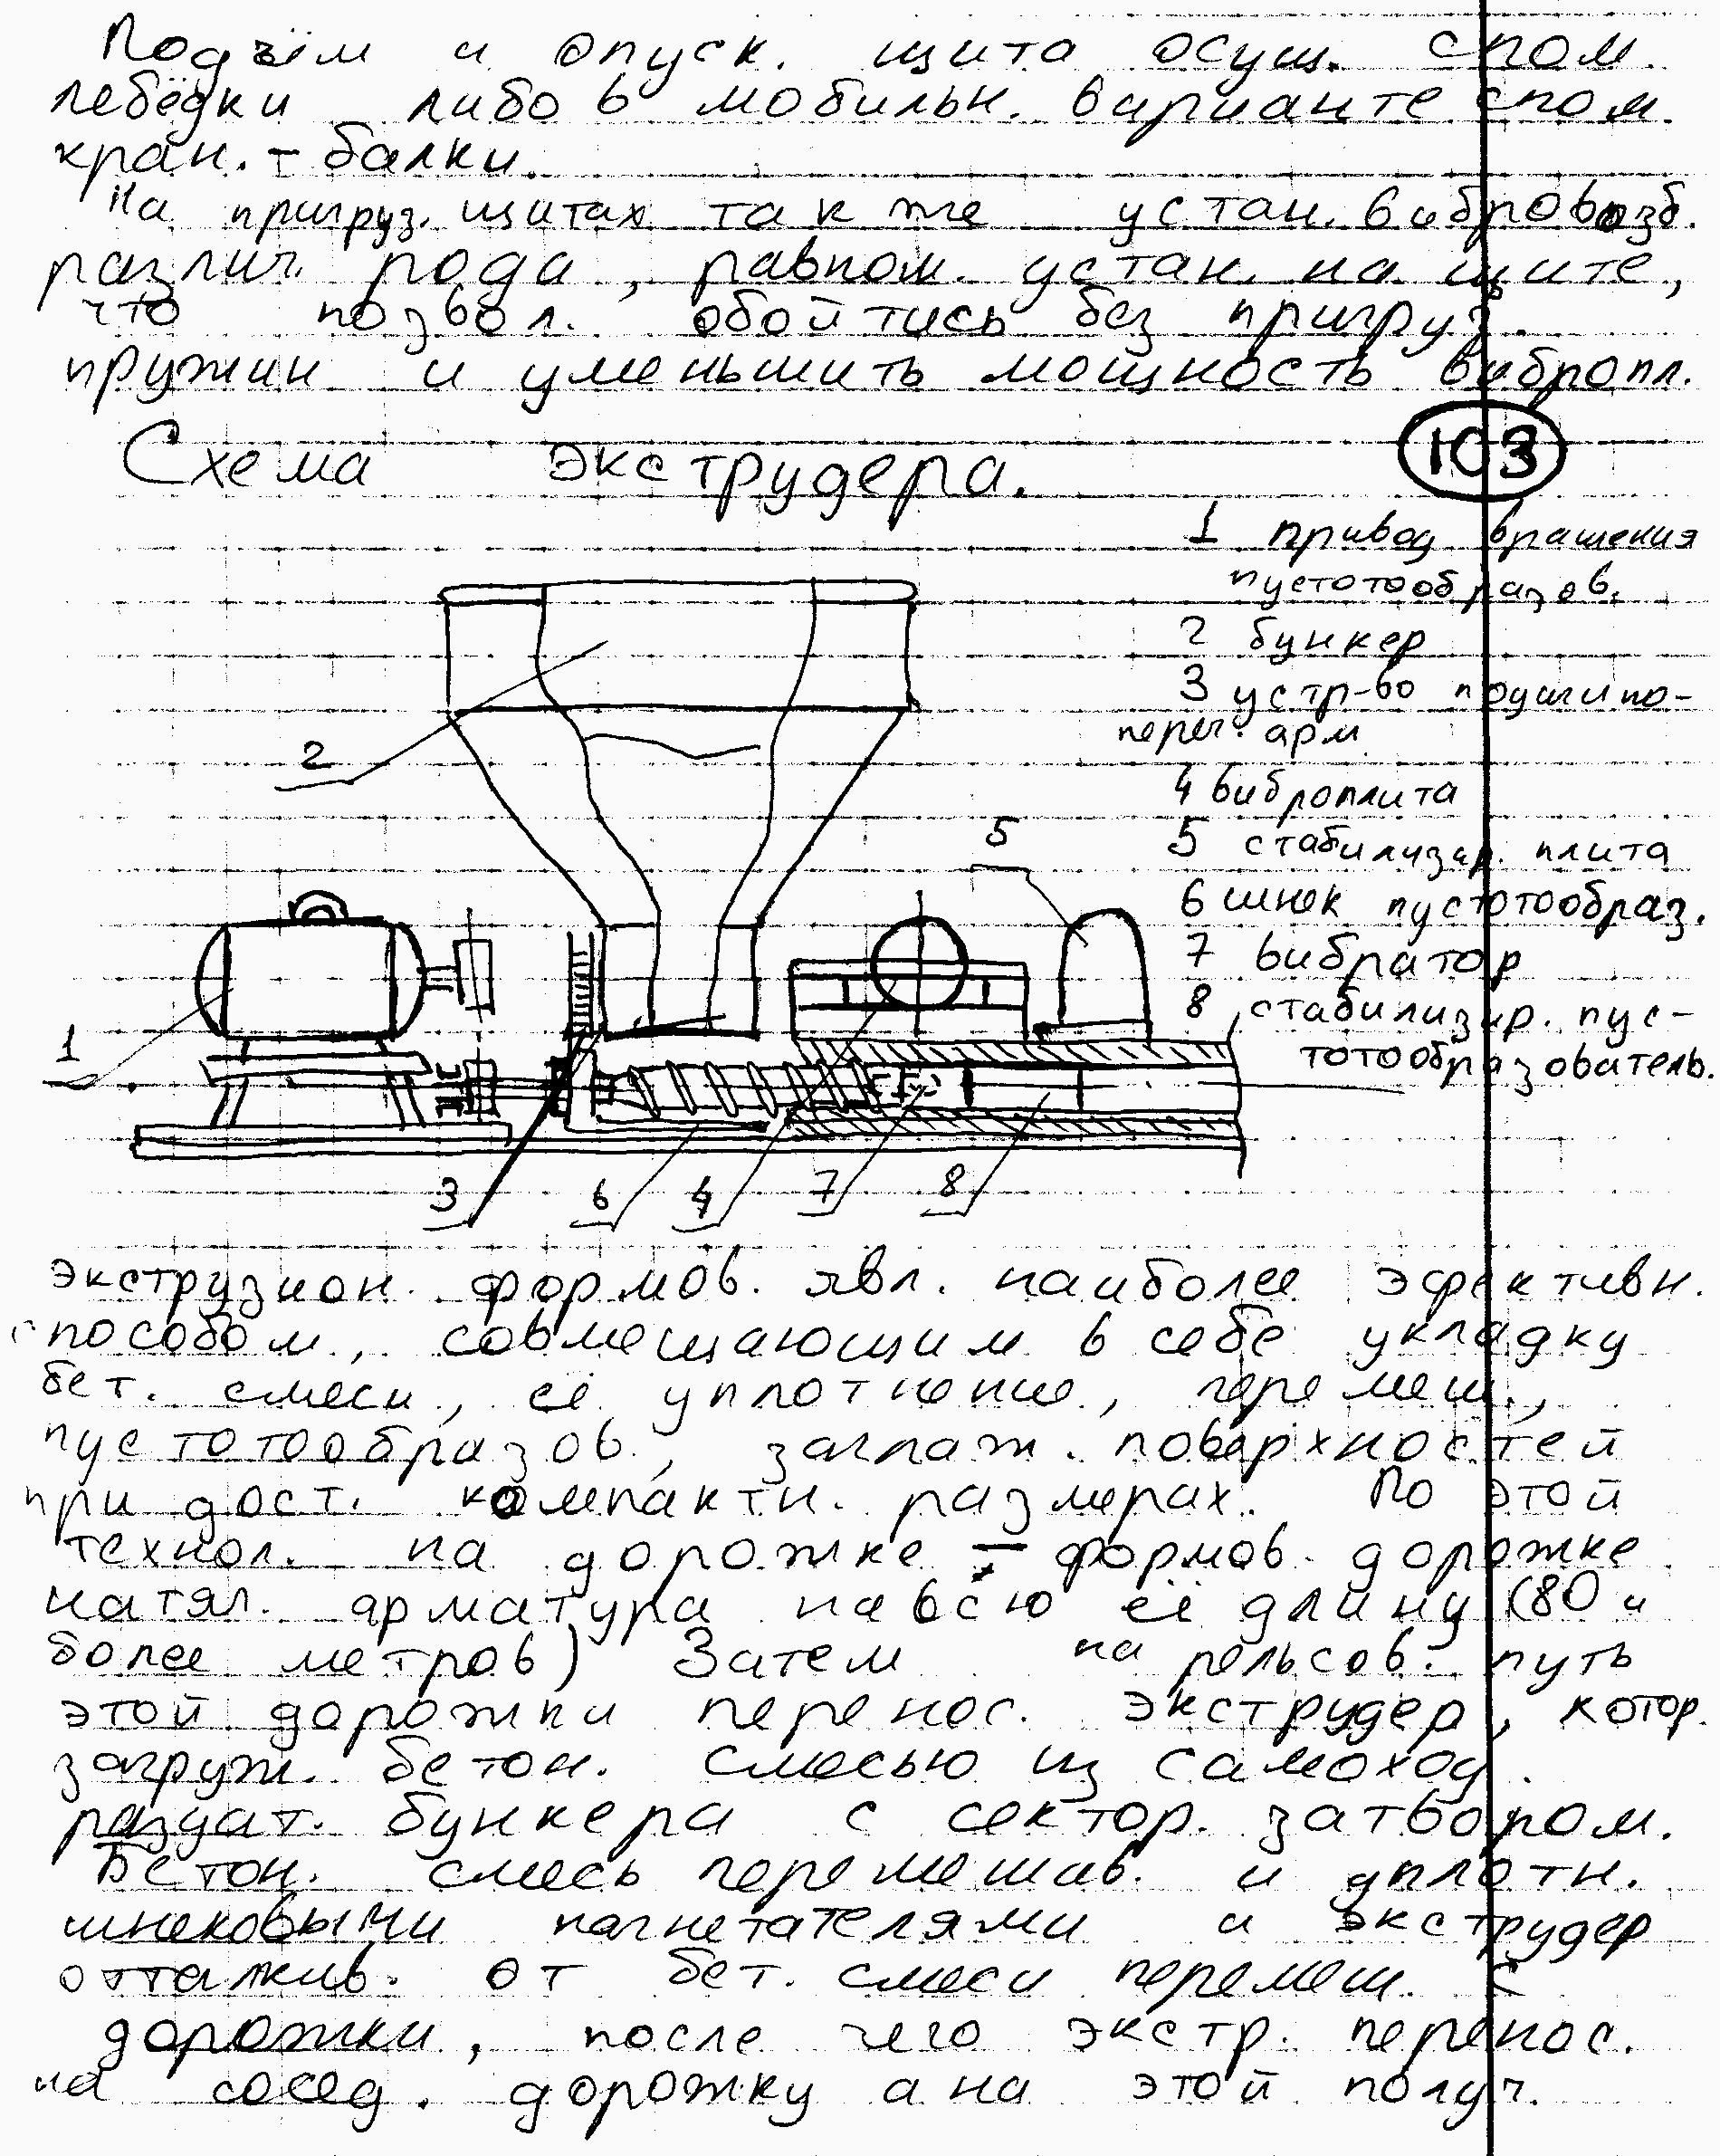 Подъём и опуск. щита осущ. спом.
лебёдки либо в мобильн. варианте спом.
кран. - балки.
На пригруз. щитах так же устан. вибровозб.
различ. рода, равном. устан. на щите,
что позвол. обойтись без пригруз.
пружин и уменьшить мощность вибропл.
Схема экструдера.
103
1 привод вращения
пустотообразов.
2 бункер
3 устр-во подачи по-
переч. арм.
4 виброплита
5 стабилизир. плита
6 шнек пустотообраз.
7 вибратор
8 стабилизир. пус-
тотообразователь.
2
5
1
3 6 4 7 8
экструзион. формов. явл. наиболее эфективн.
способом, совмещающим в себе укладку
бет. смеси, её уплотнение, перемеш.,
пустотообразов., заглаж. поверхностей
при дост. компактн. размерах. По этой
технол. на дорожке - формов. дорожке
натял. арматура на всю её длину (80 и
более метров) Затем на рельсов. путь
этой дорожки перенос. экструдер, котор.
загруж. бетон. смесью из самоход.
раздат. бункера с сектор. затвором.
Бетон. смесь перемешив. и уплотн.
шнековыми нагнетателями и экструдер
отталкив. от бет. смеси перемещ. с
дорожки, после чего экстр. перенос.
на сосед. дорожку а на этой получ.